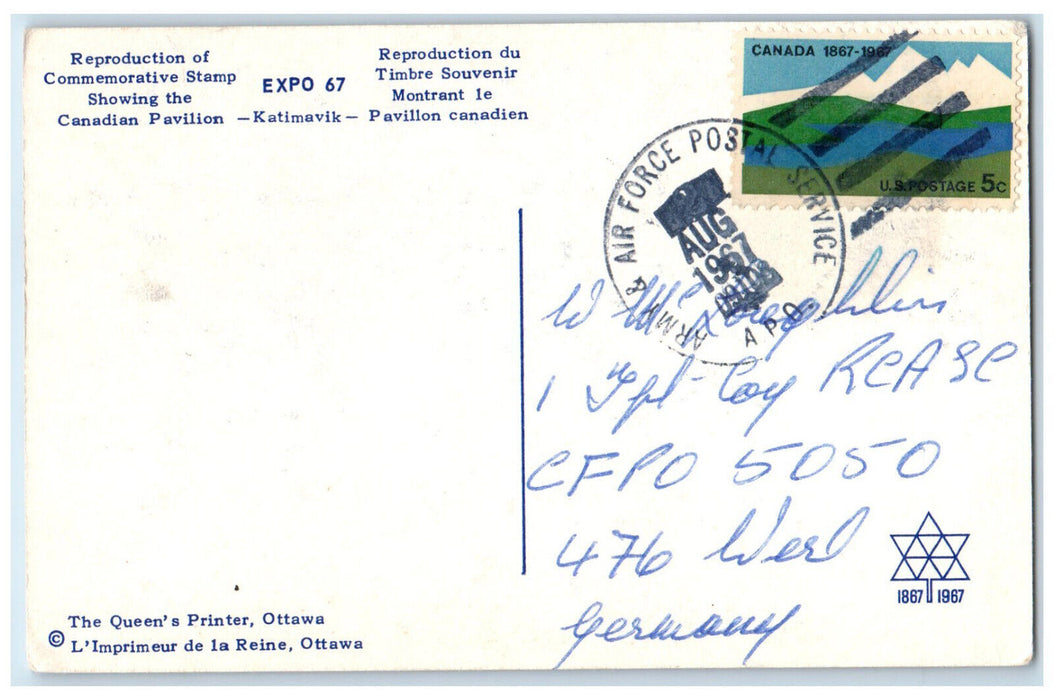 Reproduction of
Commemorative Stamp
Showing the
Canadian Pavilion
EXPO 67
—Katimavik—
Reproduction du
Timbre Souvenir
Montrant le
Pavillon canadien
CANADA 1867-1967
U.S. POSTAGE 5c
ARMY & AIR FORCE POSTAL SERVICE
APO
AUG
1967
W McLoughlin
1 Tpt Coy RCASC
CFPO 5050
476 Werl
Germany
1867 1967
The Queen's Printer, Ottawa
© L'Imprimeur de la Reine, Ottawa